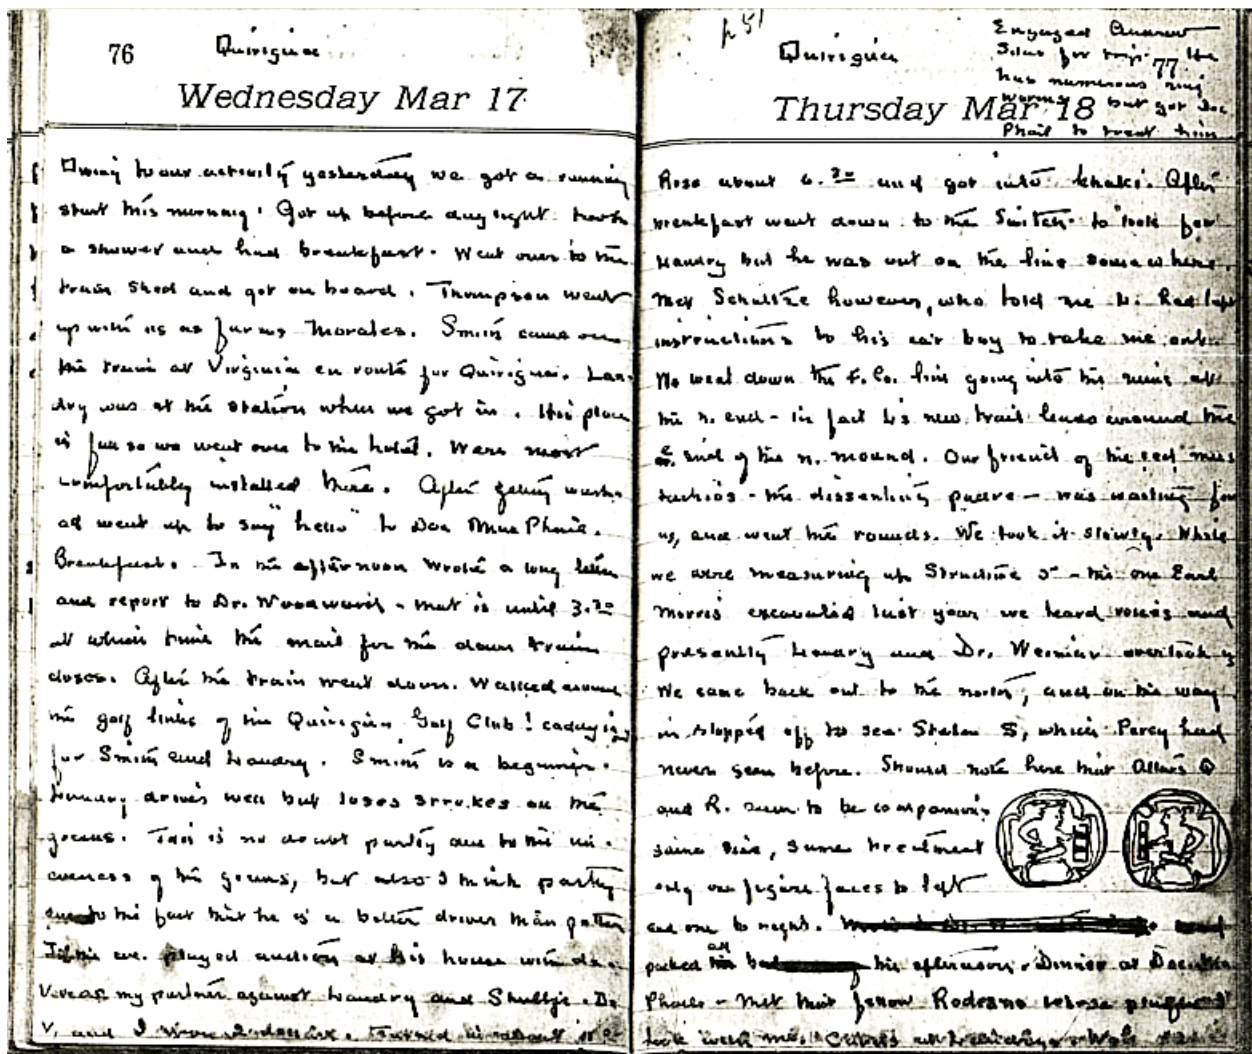 76
Quirigua
Wednesday Mar 17
Owing to our activity yesterday we got a running
start this morning. Got up before daylight. took
a shower and had breakfast. Went over to the
train shed and got on board. Thompson went
up with us as far as Morales. Smith came on
the train at Virginia en route for Quirigua. Lan-
dry was at the station when we got in. His place
is full so we went over to the hotel. Were most
comfortably installed there. After getting washed
up went up to say "hello" to Doc MacPhail.
Breakfast. In the afternoon wrote a long letter
and report to Dr. Woodward - that is until 3.30
at which time the mail for the down train
closes. After the train went down. Walked around
the golf links of the Quirigua Golf Club! caddying
for Smith and Landry. Smith is a beginner.
Landry drives well but loses strokes on the
greens. This is no doubt partly due to the un-
eveness of the greens, but also I think partly
to the fact that he is a better driver than putter
In the eve. played auction at his house with de
V. as my partner against Landry and Shultze. De
V. and I won a dollar. Turned in about
p 51
Quirigua
77
Engaged Andrew
Silas for trip. He
has numerous ring
worms but got Doc
Phail to treat him
Thursday Mar 18
Rose about 6.30 and got into khaki. After
breakfast went down to the Switch to look for
Landry but he was out on the line somewhere.
Met Schultze however, who told me L. had left
instructions to his car boy to take me out.
We went down the F. Co. line going into the ruins at
the n. end - in fact L's new trail leads around the
e. end of the n. mound. Our friend of the red mus
tachios - the dissenting padre - was waiting for
us, and went the rounds. We took it slowly. While
we were measuring up Structure 5 - the one Earl
Morris excavated last year we heard voices and
presently Landry and Dr. Weinier overtook us
We came back out to the north, and on the way
in stopped off to see Stela S, which Percy had
never seen before. Should note here that Altars Q
and R. seem to be companions
same size, same treatment
only one figure faces to left
and one to right.
packed all this afternoon. Dinner at Doc Mac
Phails - Met that fellow Rodezno whose
took with me.